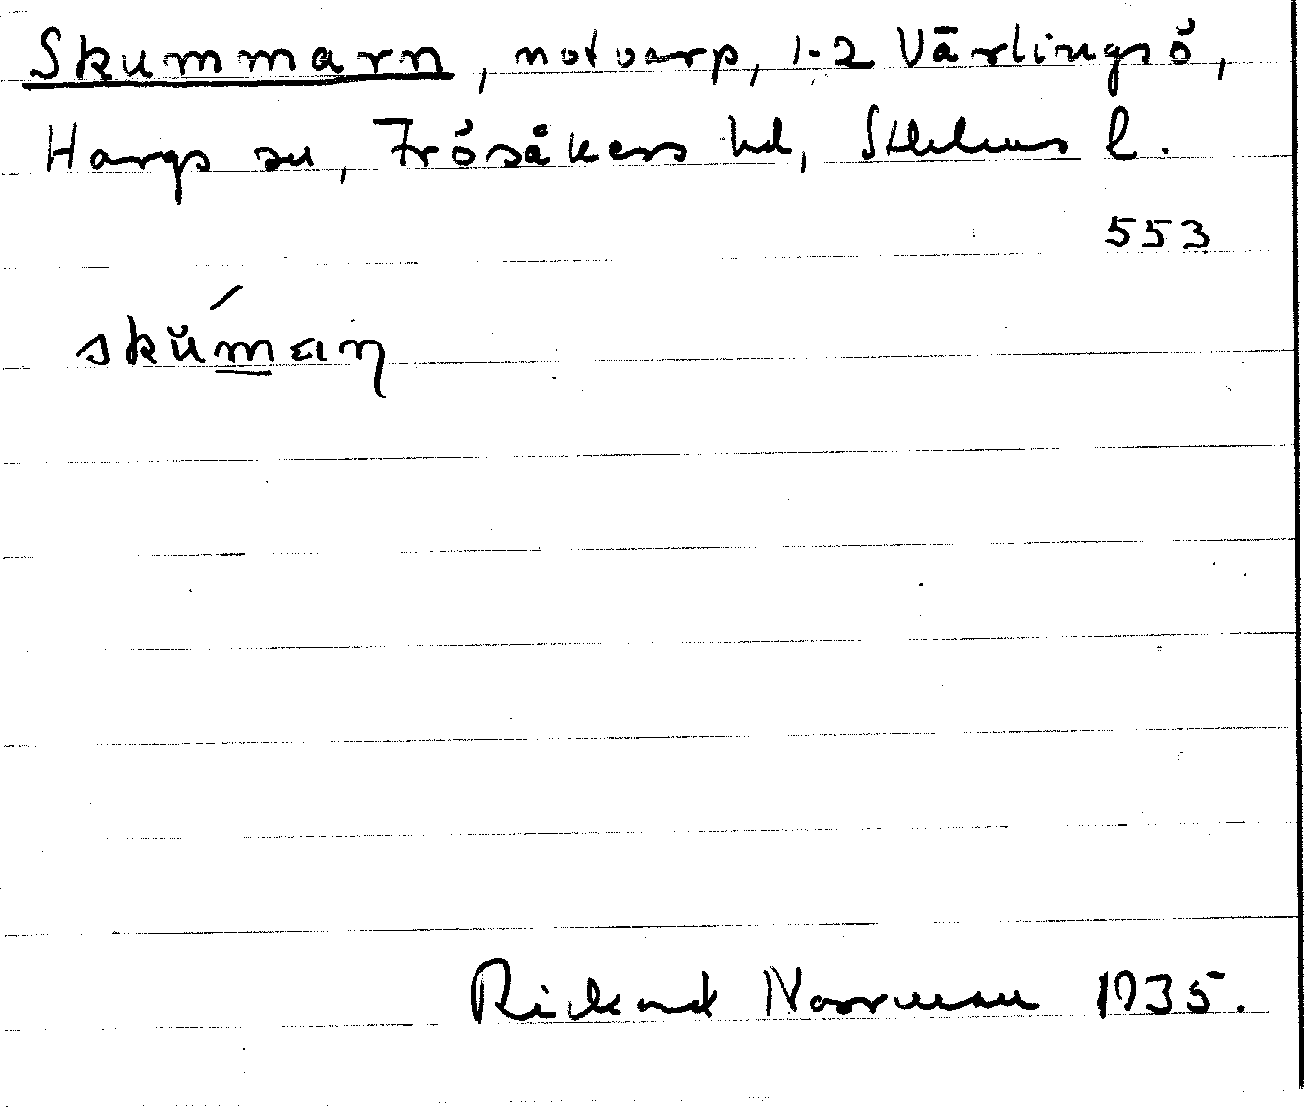 Skummarn, notvarp, 1-2 Värlingsö,
Hargs sn, Frösåkers hd, Sthlms l.
553
skŭ́man
Rickard Norrman 1935.